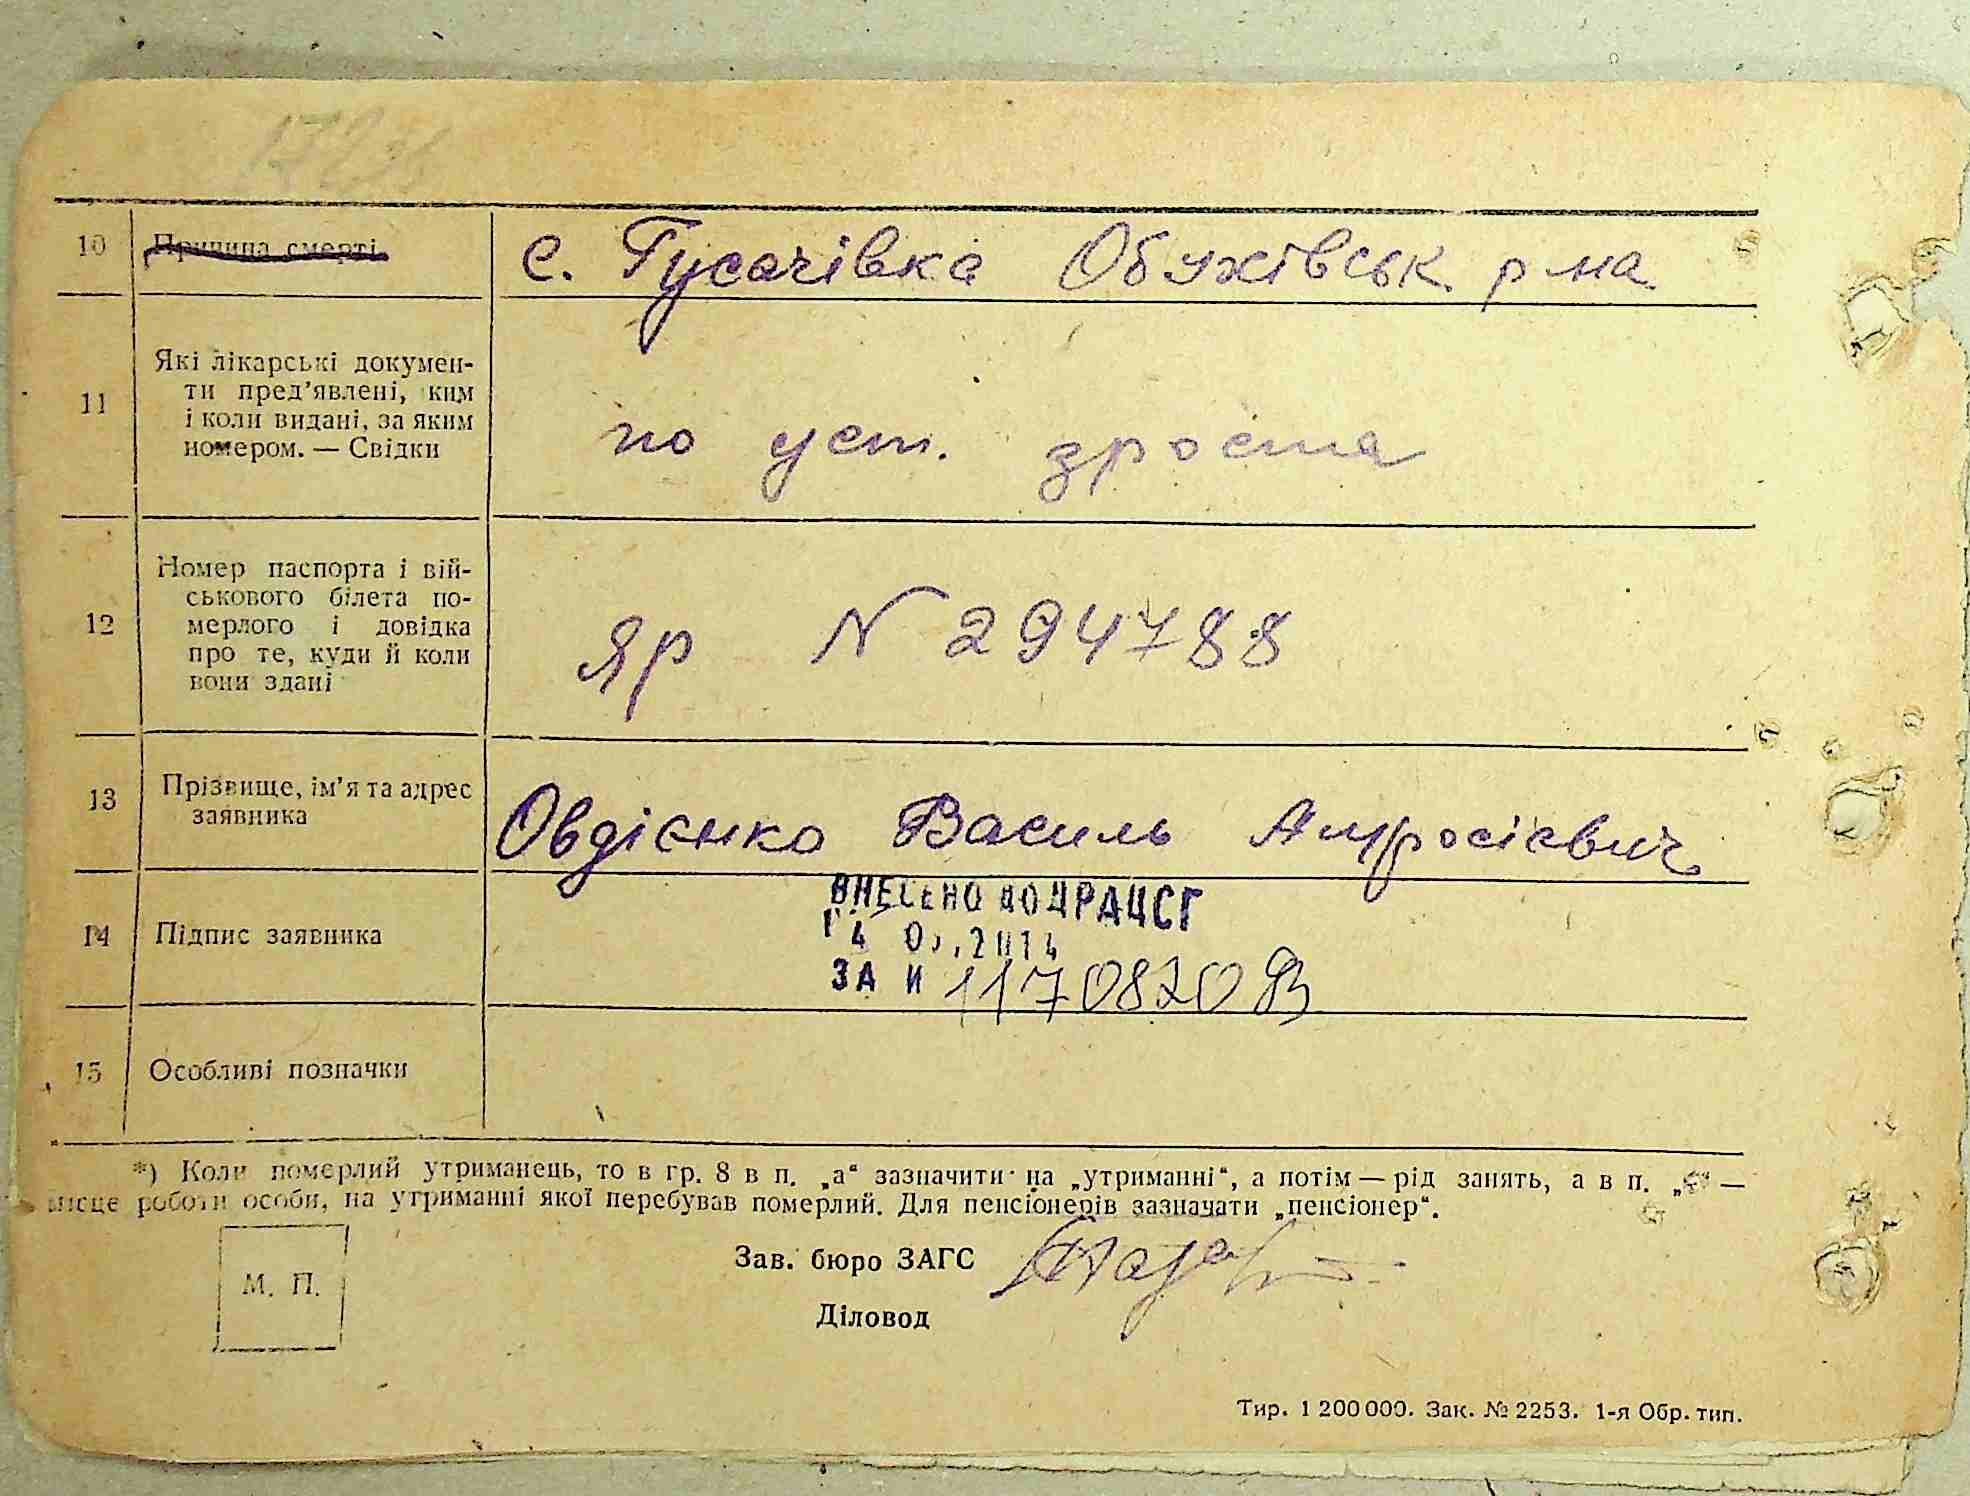 10 Причина смерті с. Гусачівка Обухівськ р на
11 Які лікарські докумен-
ти пред’явлені, ким
і коли видані, за яким
номером. — Свідки
по уст. зроста
12 Номер паспорта і вій-
ськового білета по-
мерлого і довідка
про те, куди й коли
вони здані
Яр N 294788
13 Прізвище, ім’я та адрес
заявника
Овдієнко Василь Амросієвич
14 Підпис заявника
ВНЕСЕНО ДО ДРАЦСГ
2014
ЗА И 1170820
15 Особливі позначки
*) Коли померлий утриманець, то в гр. 8 в п. „а“ зазначити на „утриманні“, а потім — рід занять, а в п. —
місце роботи особи, на утриманні якої перебував померлий. Для пенсіонерів зазначати „пенсіонер“.
М. П.
Зав. бюро ЗАГС
Діловод
Тир. 1 200 000. Зак. № 2253. 1-я Обр. тип.